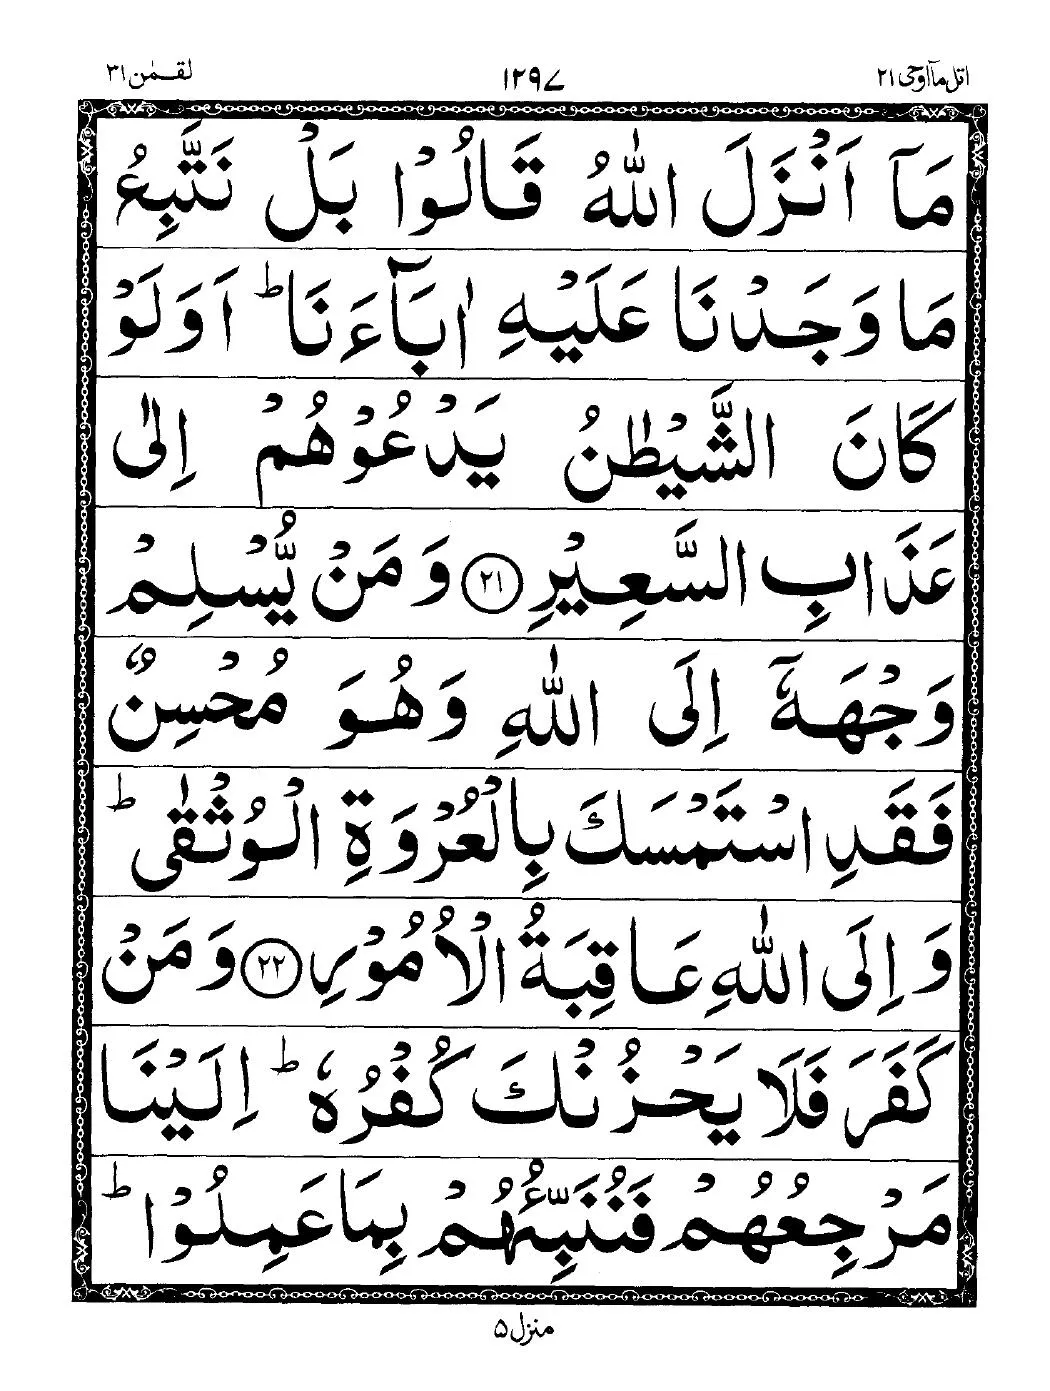 اتل مآ اوحی ۲۱
۱۲۹۷
لقمٰن ۳۱
مَاۤ اَنْزَلَ اللّٰهُ قَالُوْا بَلْ نَتَّبِعُ
مَا وَجَدْنَا عَلَیْهِ اٰبَآءَنَا ؕ اَوَلَوْ
كَانَ الشَّیْطٰنُ یَدْعُوْهُمْ اِلٰی
عَذَابِ السَّعِیْرِ ﴿۲۱﴾ وَ مَنْ یُّسْلِمْ
وَجْهَهٗۤ اِلَی اللّٰهِ وَهُوَ مُحْسِنٌ
فَقَدِ اسْتَمْسَكَ بِالْعُرْوَةِ الْوُثْقٰی ؕ
وَ اِلَی اللّٰهِ عَاقِبَةُ الْاُمُوْرِ ﴿۲۲﴾ وَ مَنْ
كَفَرَ فَلَا یَحْزُنْكَ كُفْرُهٗ ؕ اِلَیْنَا
مَرْجِعُهُمْ فَنُنَبِّئُهُمْ بِمَا عَمِلُوْا ؕ
منزل ۵